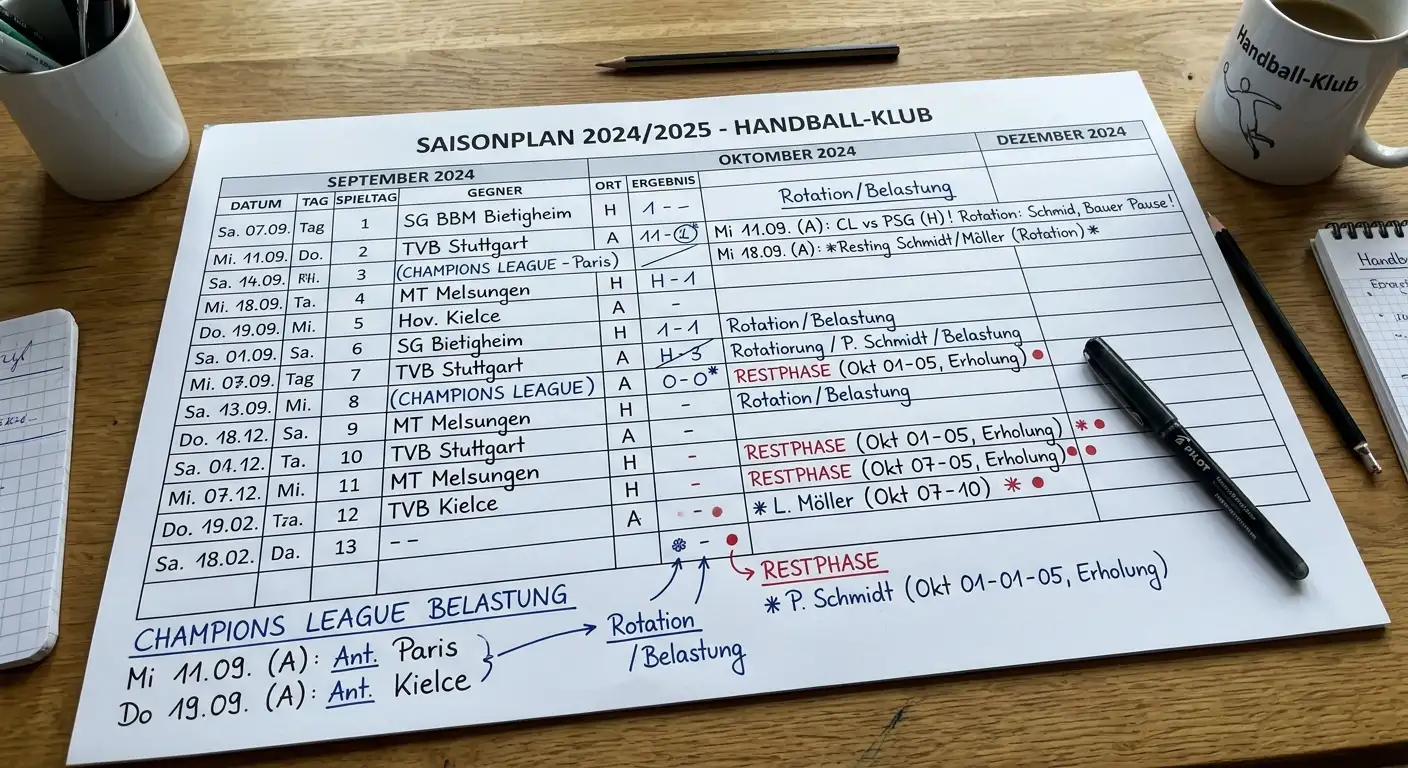 Handball-Klub
SAISONPLAN 2024/2025 - HANDBALL-KLUB
SEPTEMBER 2024 OKTOMBER 2024 DEZEMBER 2024
DATUM TAG SPIELTAG GEGNER ORT ERGEBNIS Rotation/Belastung
Sa. 07.09. Tag 1 SG BBM Bietigheim H 1 - -
Mi. 11.09. Do. 2 TVB Stuttgart A 11-1* Mi 11.09. (A): CL vs PSG (H)! Rotation: Schmid, Bauer Pause!
Sa. 14.09. 3 (CHAMPIONS LEAGUE - Paris) Mi 18.09. (A): *Resting Schmidt/Möller (Rotation)*
Mi. 18.09. Ta. 4 MT Melsungen H H-1
Do. 19.09. Mi. 5 Hov. Kielce A -
Sa. 01.09. Sa. 6 SG Bietigheim H 1-1 Rotation/Belastung
Mi. 07.09. Tag 7 TVB Stuttgart A H-3 Rotatiorung / P. Schmidt / Belastung
Sa. 13.09. Mi. 8 (CHAMPIONS LEAGUE) A 0-0* RESTPHASE (Okt 01-05, Erholung)
Do. 18.12. Sa. 9 MT Melsungen H - Rotation/Belastung
Sa. 04.12. Ta. 10 TVB Stuttgart A -
Mi. 07.12. Mi. 11 MT Melsungen H - RESTPHASE (Okt 01-05, Erholung) *
Do. 19.02. Tza. 12 TVB Kielce H - RESTPHASE (Okt 07-05, Erholung)
Sa. 18.02. Da. 13 - - A - * L. Möller (Okt 07-10) *
* -
RESTPHASE
* P. Schmidt (Okt 01-01-05, Erholung)
CHAMPIONS LEAGUE BELASTUNG
Mi 11.09. (A): Ant. Paris
Do 19.09. (A): Ant. Kielce
Rotation
/Belastung
PILOT
Handb